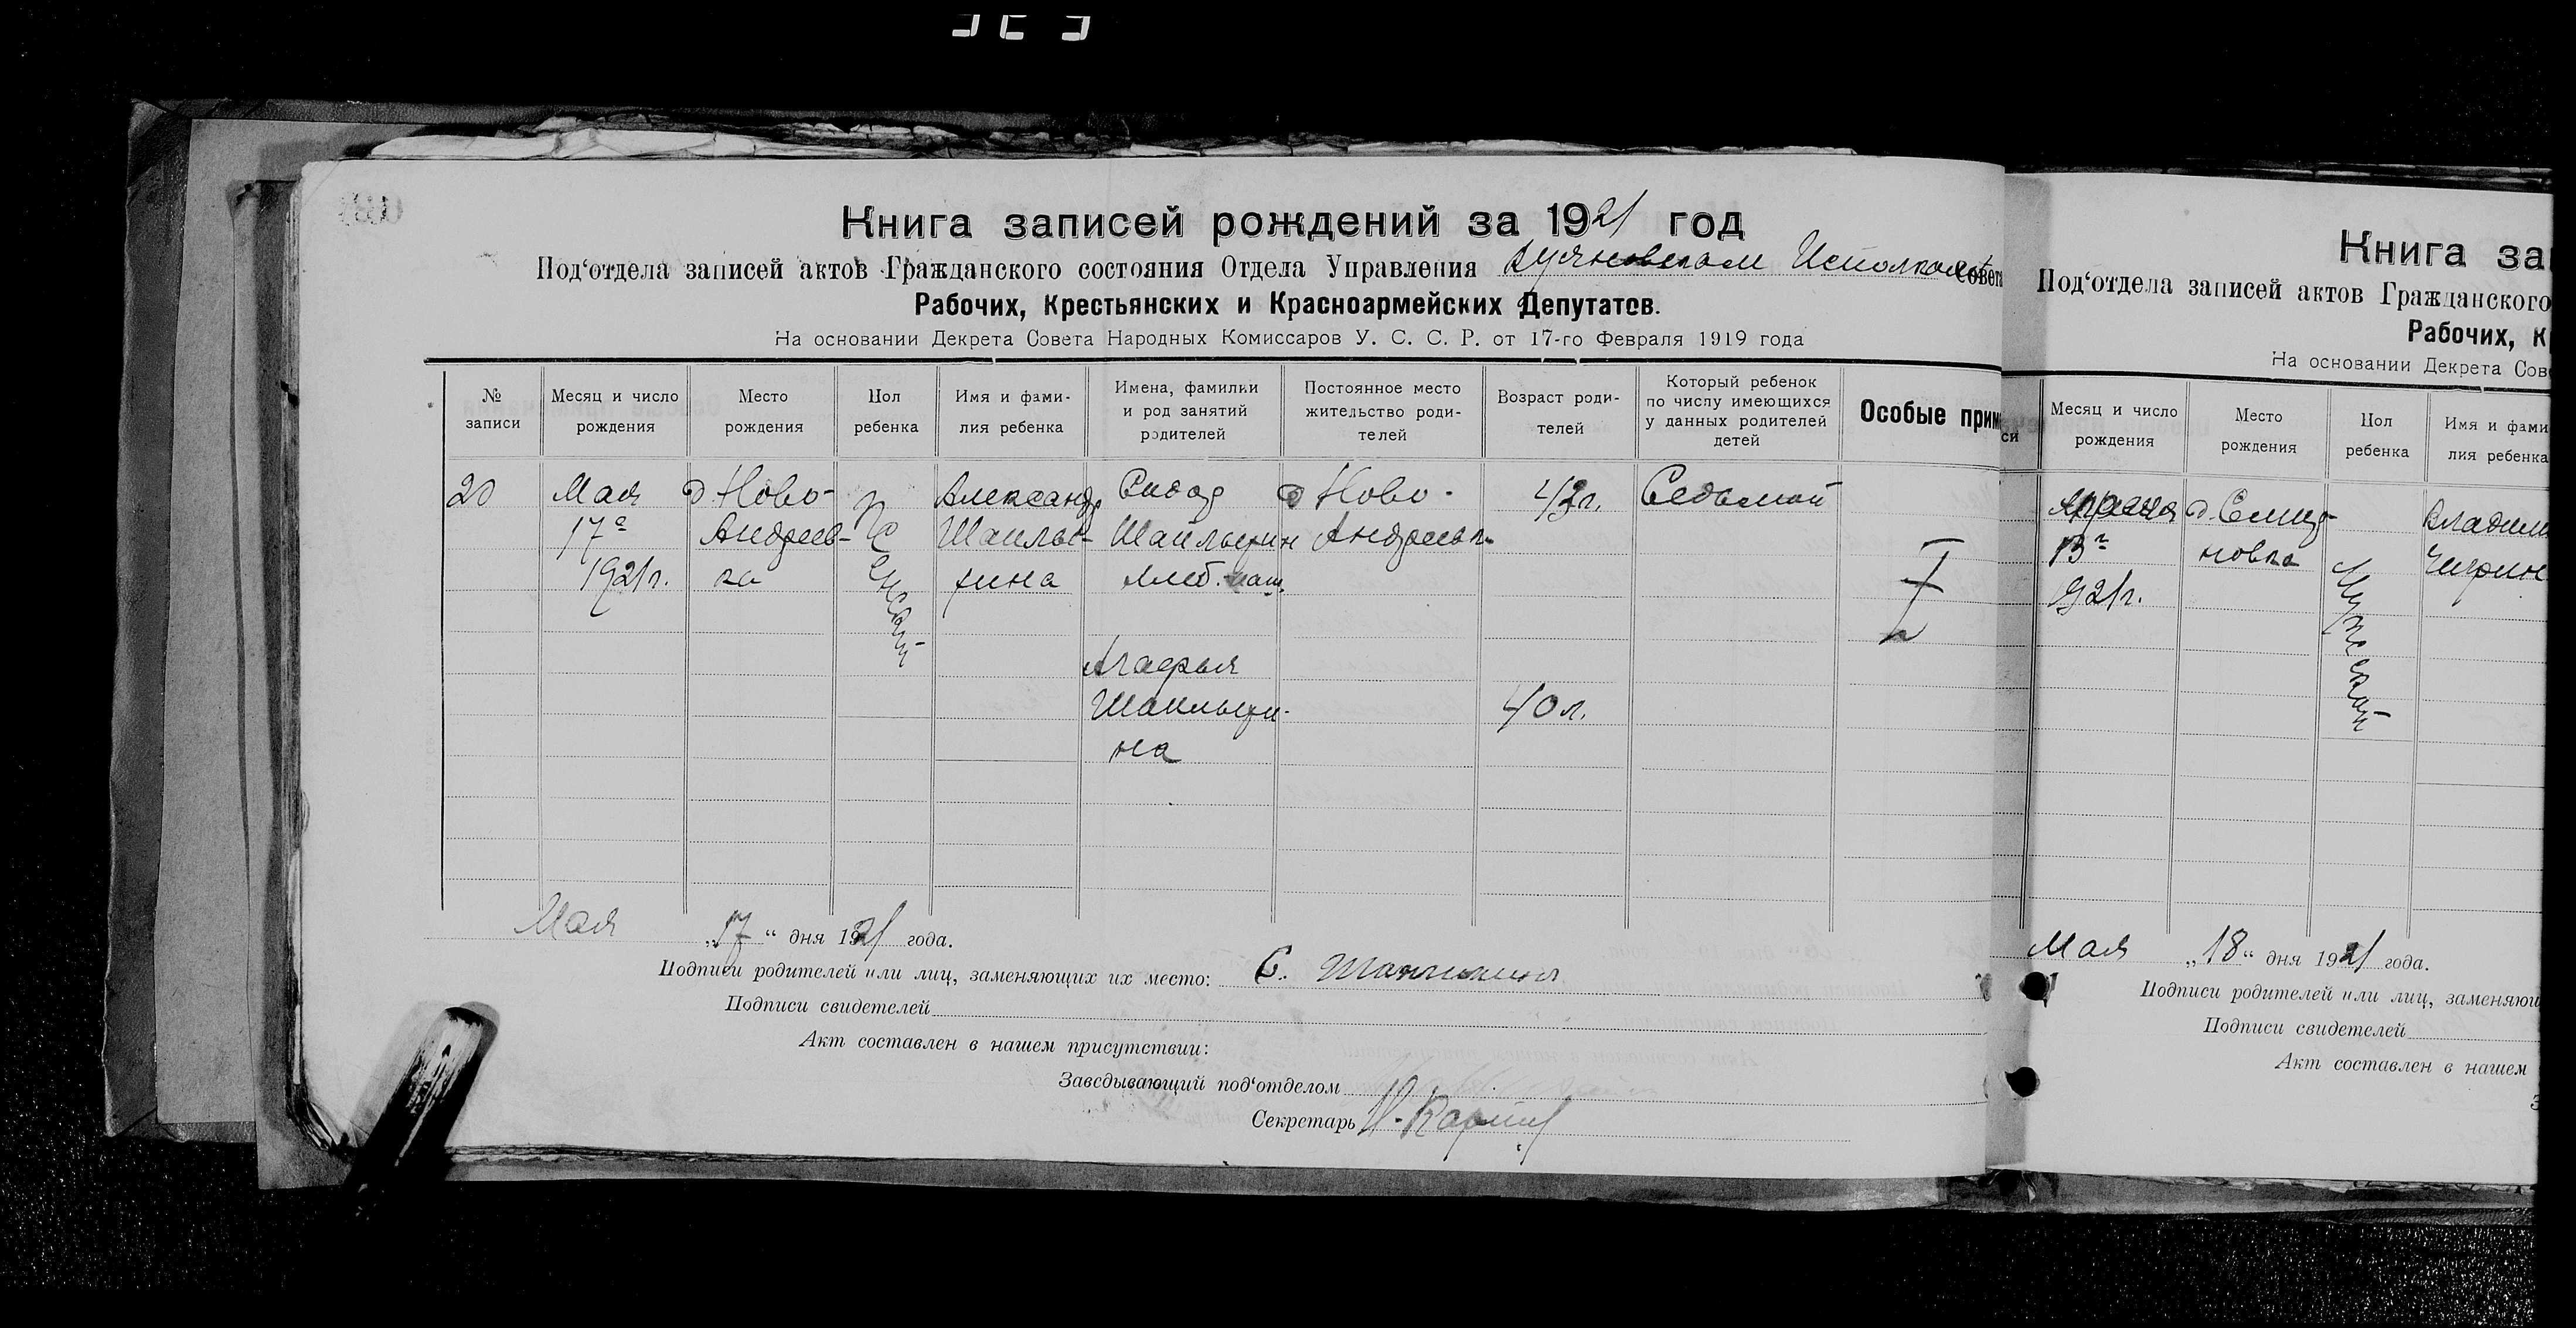 Книга записей рождений за 1921 год
Под‘отдела записей актов Гражданского состояния Отдела Управления Исполком Совета
Рабочих, Крестьянских и Красноармейских Депутатов.
На основании Декрета Совета Народных Комиссаров У. С. С. Р. от 17-го Февраля 1919 года
№ записи
Месяц и число рождения
Место рождения
Пол ребенка
Имя и фами-
лия ребенка
Имена, фамилии
и род занятий
родителей
Постоянное место
жительство роди-
телей
Возраст роди-
телей
Который ребенок
по числу имеющихся
у данных родителей
детей
Особые прим
20 Мая д Ново- Женский Александр Сидор д Ново- 43г. Седьмой
17го Андреев- Шаильо- Андреевк
1921г. ка хина хлеб. паш.
Агафья
40 л.
на
Мая „17“ дня 1921 года.
Подписи родителей или лиц, заменяющих их место: С.
Подписи свидетелей
Акт составлен в нашем присутствии:
Заведывающий под‘отделом
Секретарь
Книга за
Под‘отдела записей актов Гражданского
Рабочих, К
На основании Декрета Сов
си
Месяц и число
рождения
Место
рождения
Пол
ребенка
Имя и фами
лия ребенка
д. Мужской Владим
13го новка
921г.
Мая „18“ дня 1921 года.
Подписи родителей или лиц, заменяющ
Подписи свидетелей
Акт составлен в нашем